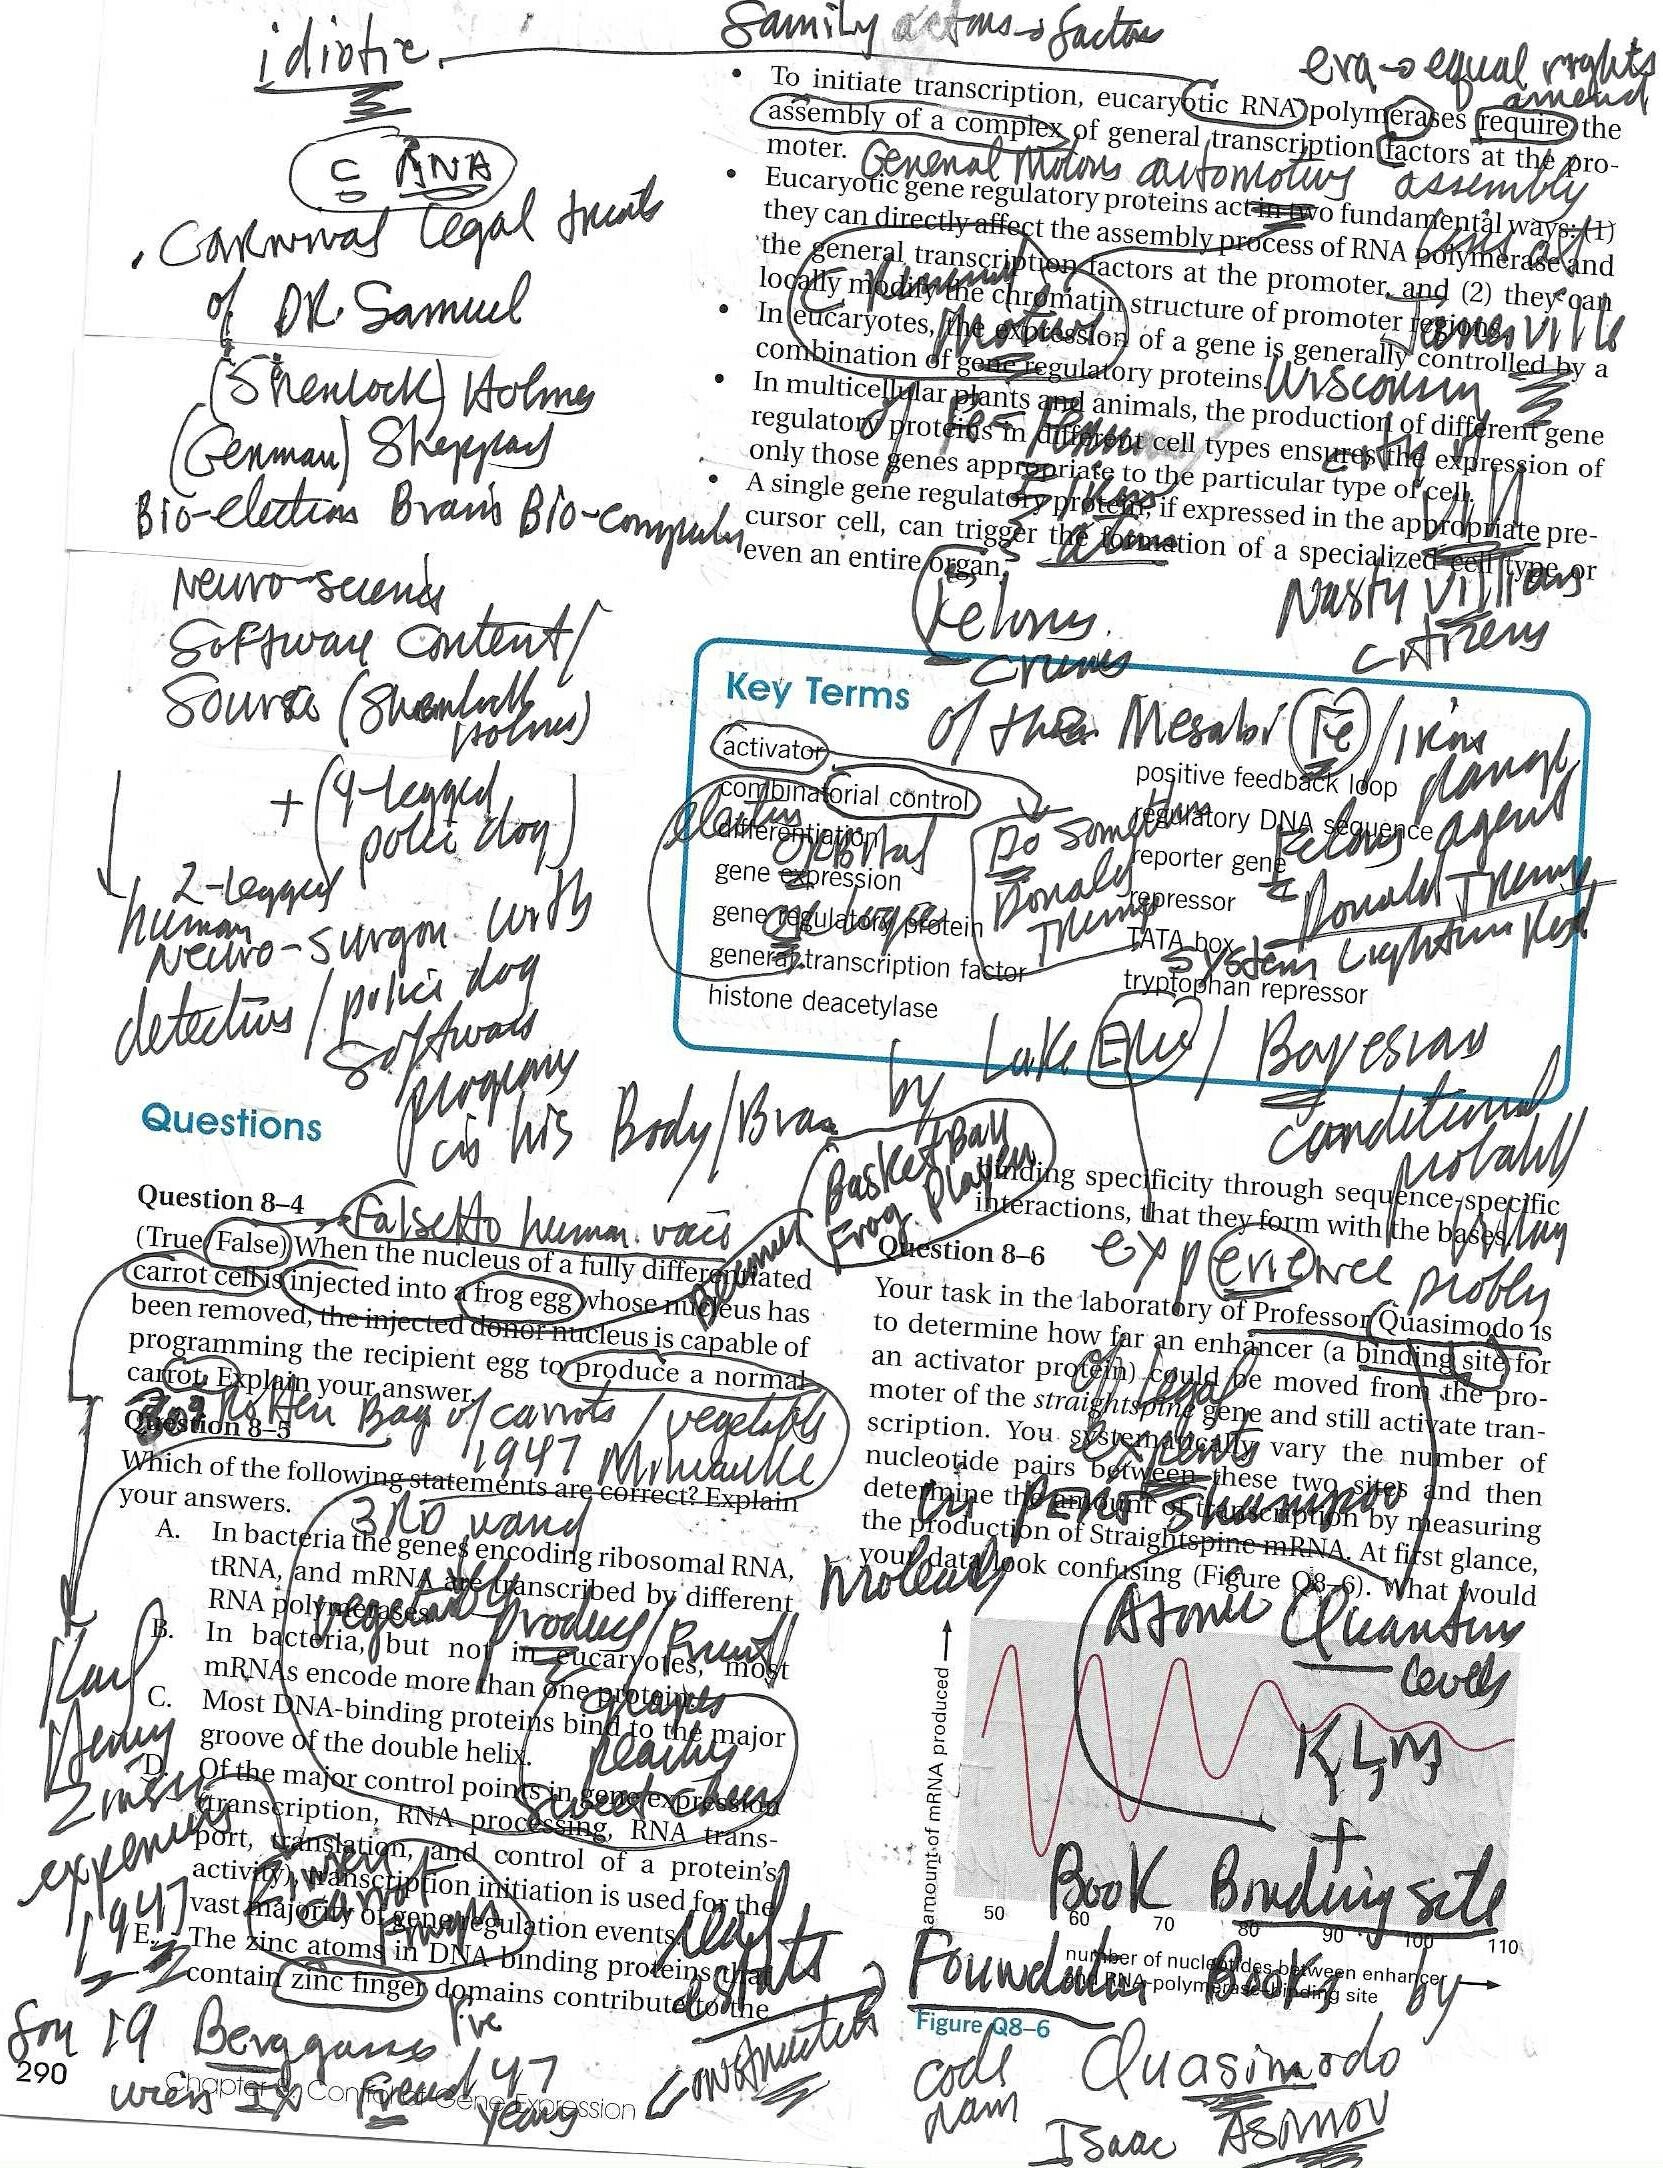 idiotic
Family actors → factors
era → equal rights
amend
• To initiate transcription, eucaryotic RNA polymerases require the
assembly of a complex of general transcription factors at the pro-
moter.
General Motors automotive assembly
• Eucaryotic gene regulatory proteins act in two fundamental ways: (1)
they can directly affect the assembly process of RNA polymerase and
the general transcription factors at the promoter, and (2) they can
locally modify the chromatin structure of promoter regions.
• In eucaryotes, the expression of a gene is generally controlled by a
combination of gene regulatory proteins.
• In multicellular plants and animals, the production of different gene
regulatory proteins in different cell types ensures the expression of
only those genes appropriate to the particular type of cell.
• A single gene regulatory protein, if expressed in the appropriate pre-
cursor cell, can trigger the formation of a specialized cell type or
even an entire organ.
Janesville
Wisconsin
city of
Vill
Nasty Villians
citizens
Felony
crimes
C RNA
Carnival legal treats
of DR. Samuel
(Sherlock) Holmes
(German) Sheppard
Bio-election Brain Bio-computer
Neuro-science
Software content/
Source (Sherlock
Holmes)
+ (4-legged
police dog)
2-legged
human
Neuro-surgon with
detective / police dog
software
programs
in his Body/Brain by
Lake Erie / Bayesian
conditional
probabill
Key Terms
of the Mesabi Fe / iron
activator
combinatorial control
differentiation
gene expression
gene regulatory protein
general transcription factor
histone deacetylase
positive feedback loop
regulatory DNA sequence
reporter gene
repressor
TATA box
tryptophan repressor
election
orbital
Do Something
Donald
Trump
damage
Felony agent
Donald Trump
System Lightning Rod
Questions
Question 8–4
Falsetto human voice
(True/False) When the nucleus of a fully differentiated
carrot cell is injected into a frog egg whose nucleus has
been removed, the injected donor nucleus is capable of
programming the recipient egg to produce a normal
carrot. Explain your answer.
Rotten Bag of carrots / vegetable
1947 Milwaukee
Basketball
Frog player
Question 8–5
Which of the following statements are correct? Explain
your answers.
3RD ward
A. In bacteria the genes encoding ribosomal RNA,
tRNA, and mRNA are transcribed by different
RNA polymerases.
vegetable produce / Fruit
B. In bacteria, but not in eucaryotes, most
mRNAs encode more than one protein.
grapes
C. Most DNA-binding proteins bind to the major
groove of the double helix.
peaches
D. Of the major control points in gene expression
(transcription, RNA processing, RNA trans-
port, translation, and control of a protein's
activity), transcription initiation is used for the
vast majority of gene regulation events.
E. The zinc atoms in DNA-binding proteins that
contain zinc finger domains contribute to the
Karl
Henry
Zinssn
experiences
1947
carrot
finger
real
estate
constructs
binding specificity through sequence-specific
interactions, that they form with the bases.
experience
Question 8–6
Your task in the laboratory of Professor Quasimodo is
to determine how far an enhancer (a binding site for
an activator protein) could be moved from the pro-
moter of the straightspine gene and still activate tran-
scription. You systematically vary the number of
nucleotide pairs between these two sites and then
determine the amount of transcription by measuring
the production of Straightspine mRNA. At first glance,
your data look confusing (Figure Q8–6). What would
of legal
experts
in Pert Shampoo
molecules
Atomic Quantum
levels
K, L, M
+
Book Binding site
amount of mRNA produced
50 60 70 80 90 100 110
number of nucleotides between enhancer
and RNA-polymerase-binding site
Foundation Books by
Figure Q8–6
code
nam
Quasimodo
Isaac Asimov
for 19 Berggasse
Wien IX Freud 47
years
290 Chapter 8: Control of Gene Expression